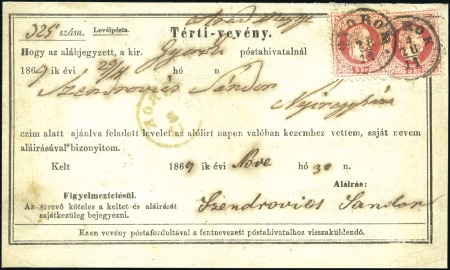 325 szám. Levélpósta.
Térti-vevény.
Hogy az alábjegyzett, a kir. postahivatalnál
1869 ik évi 29/11 hó n.
Szendrovics Sándor
Nyiregyháza
czim alatt ajánlva feladott levelet az alólirt napon valóban kezemhez vettem, saját nevem
aláirásával bizonyitom.
Kelt 1869 ik évi Nove hó 30 n.
Figyelmeztetésül. Aláirás:
Az átvevő köteles a keltet és aláirását Szendrovics Sandor
sajátkezüleg bejegyezni.
Ezen vevény póstafordultával a fentnevezett postahivatalhoz visszaküldendő.